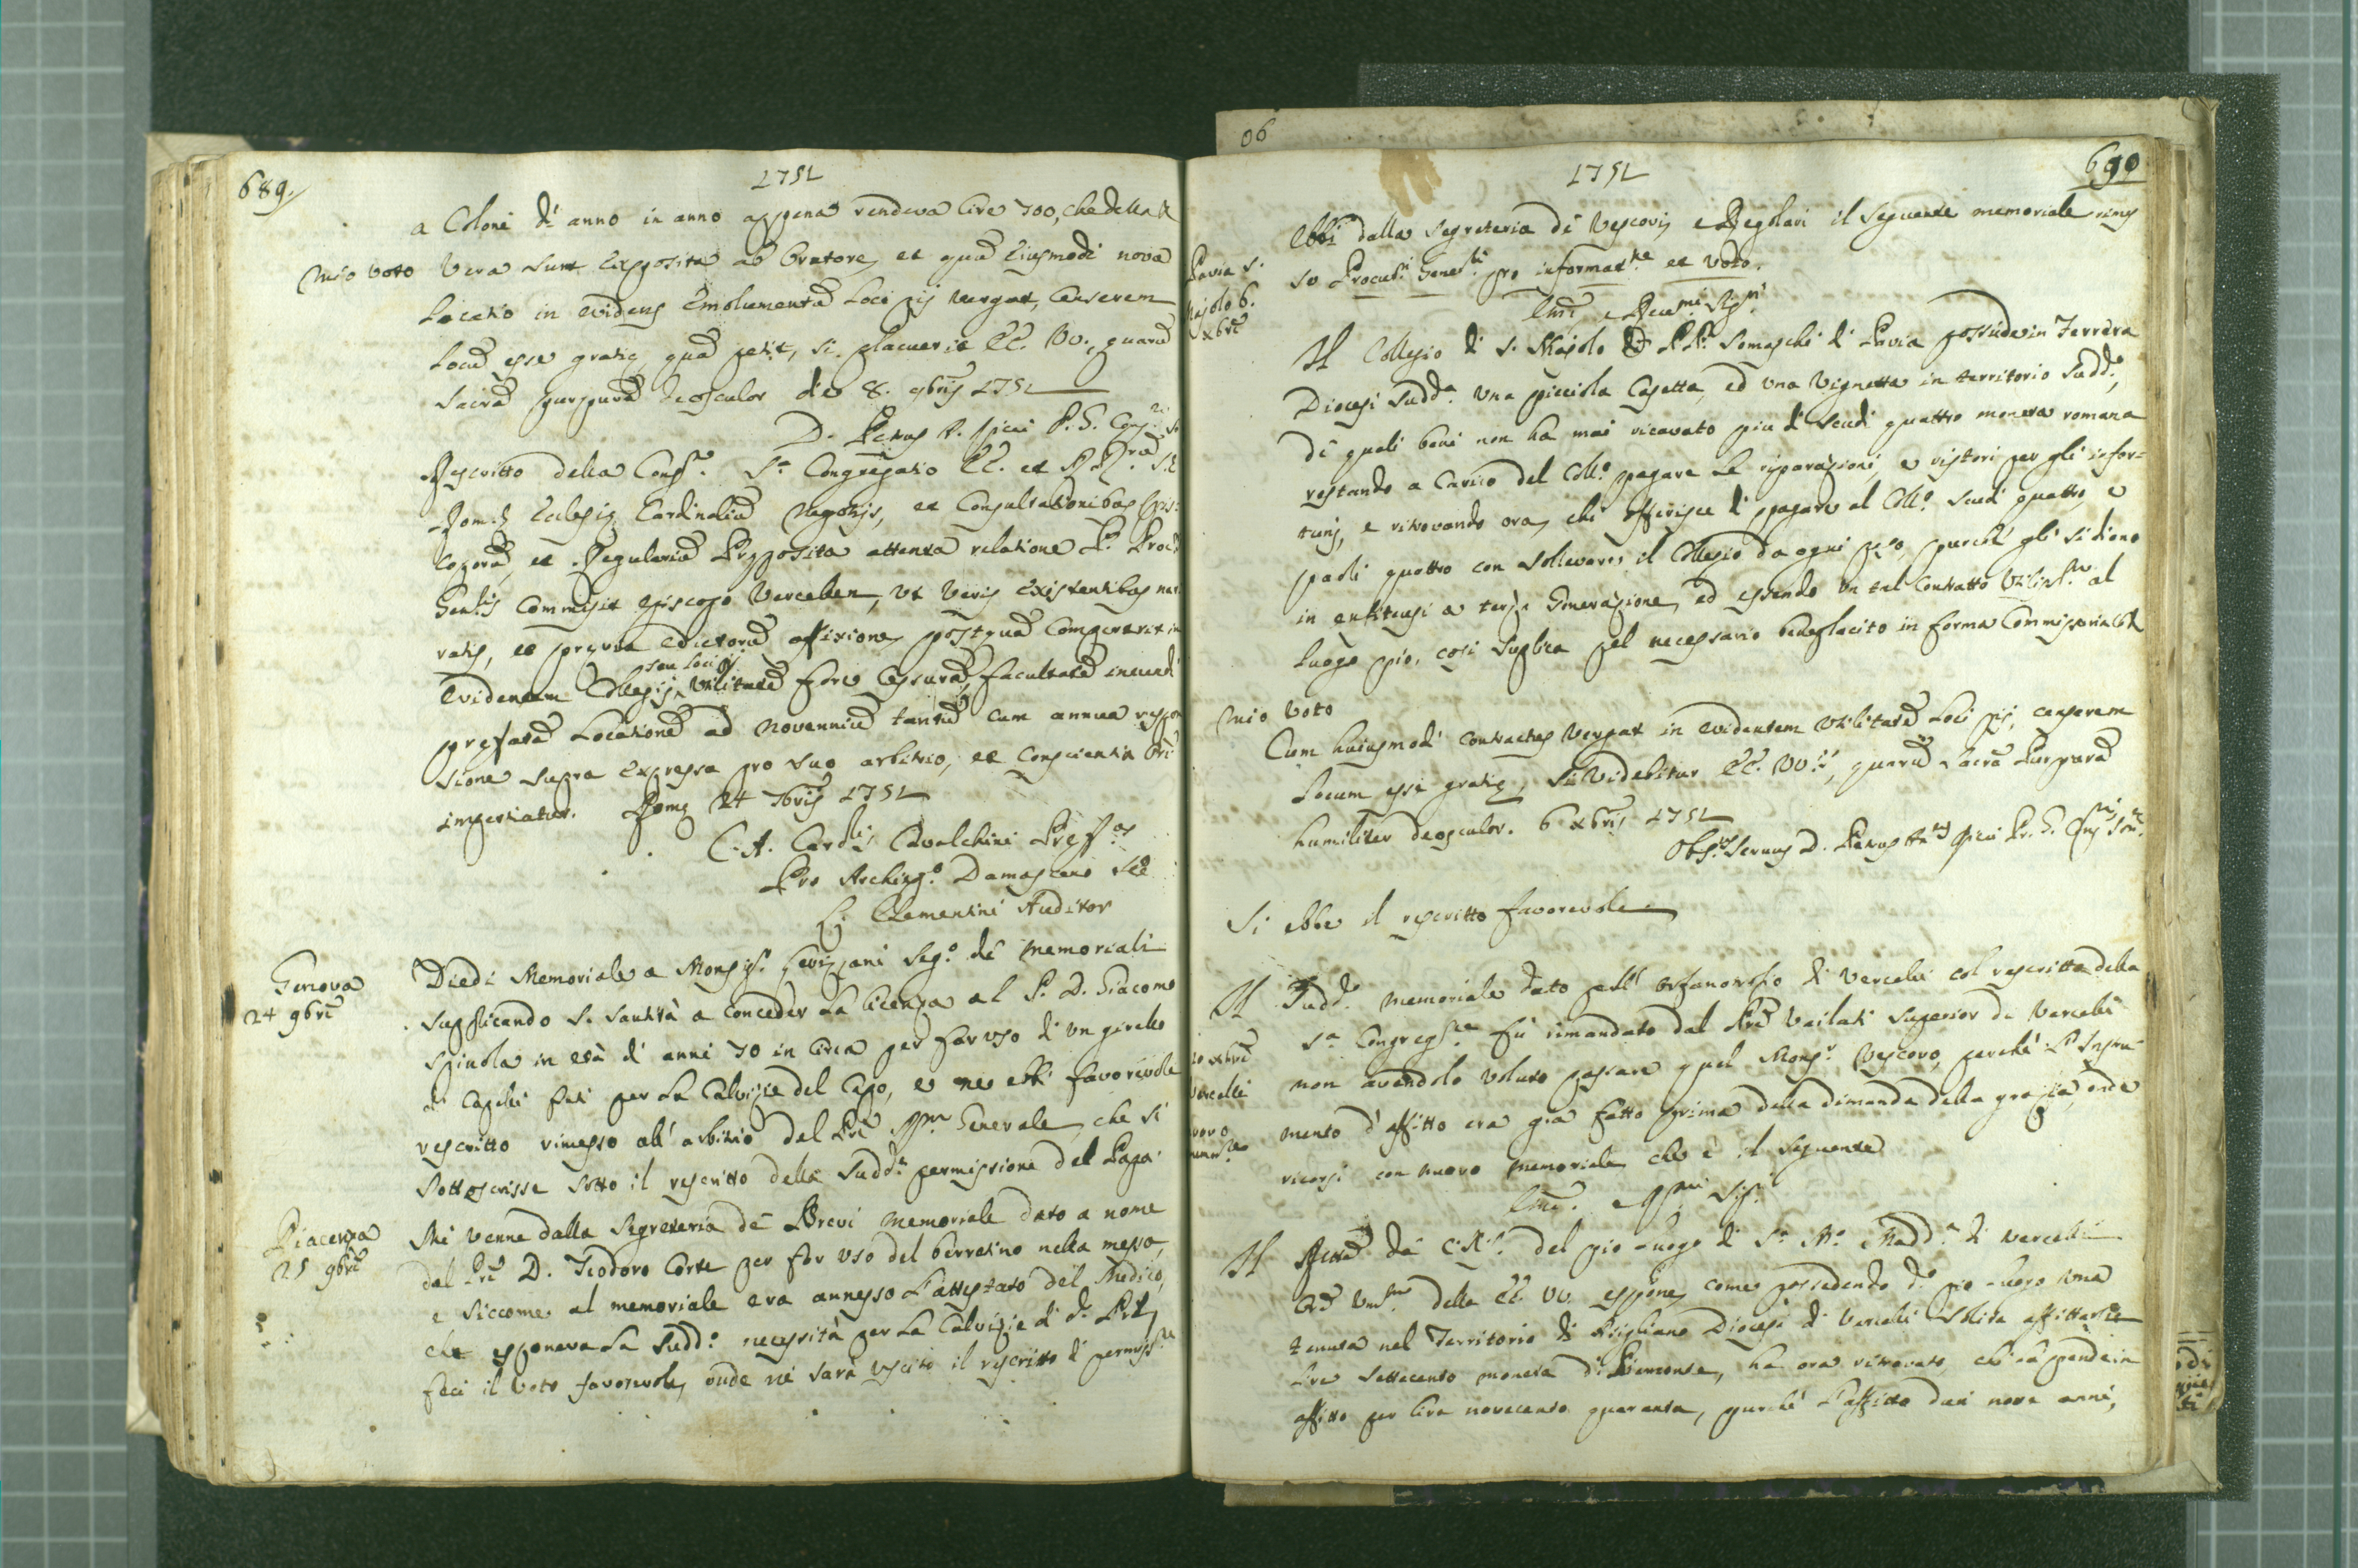 689.
1751
a Coloni di anno in anno appena rendeva lire 700, che della
mio voto Vera sunt exposita ab Oratore, et quia eiusmodi nova
Locatio in evidens emolumentu Loci pij vergat, Censerem
Locu esse gratie qua petit, si placuerit EE. VV., quaru
Sacra purpura deosculor die 8. 9bris 1751
D. Petrus A. Ricci P. G. Cong.
Rescritto della Cong.e S.a Congregatio EE. et RR. S.R.
Rom. Ecclesiæ Cardinaliu negotijs, et Consultationibus Epis:
coporu, et Regulariu Præposita attenta relatione P. Proc.
Gen.lis Commisit Episcopo Vercellen, ut veris existentibus nar
ratis, et prævia edictoru affixione, postqua Compererit in
seu Loci pij
evidentem Collegij utilitate fore Cessura, facultate ineundi
prefata Locatione ad novenniu tantu cum annua respon
sione supra expressa pro suo arbitrio, et Conscientia Ori
impertiatur. Romæ 24 9bris 1751
C. A. Card.lis Cavalchini Præf.us
Pro Archiep.o Damasceno Sec
C. Clementini Auditor
Genova
24 9bre
Diedi Memoriale a Monsig.r Levizzani Seg.o de memoriali
supplicando S. Santità a conceder la licenza al P. D. Giacomo
Spinola in età di anni 70 in circa per far uso di un girello
di Capelli finti per la Calvizie del Capo, e ne ebbi favorevole
rescritto rimesso all' arbitrio del Pre Generale, che si
sottoscrisse sotto il rescritto della sudd.a permissione del Papa.
Piacenza
25 9bre
Mi venne dalla Segreteria de Brevi memoriale dato a nome
del Pre D. Teodoro Corte per far uso del berrettino nella messa,
e siccome al memoriale era annesso l'attestato del Medico,
che esponeva la sudd.a necessità per la Calvizie di d. Pre,
feci il voto favorevole, onde ne sarà uscito il rescritto di permiss.e
06
1751
690
Pavia S.
Majolo 6.
Xbre
Ebbi dalla Segreteria di Vescovi, e Regolari il seguente memoriale rimes
so Procuri Generli pro informat.ne et voto.
Emi e Revmi Sigri
Il Collegio di S. Majolo de PP. Somaschi di Pavia possiede in Terrera
Diocesi sudd.a una picciola Casetta, ed una Vignetta in territorio sudd.o,
di quali beni non ha mai ricavato piu di scudi quattro moneta romana
restando a Carico del Coll.o pagare le riparazioni, e ristori per gli infor=
tunj, e ritrovando ora, chi offerisce di pagare al Coll.o scudi quattro, e
paoli quattro con sollevare il Collegio da ogni peso, purche gli si diano
in enfiteusi a terza Generazione, ed essendo un tal Contratto utiliss.o al
Luogo pio, cosi supplica pel necessario beneplacito in forma Commissaria
mio voto
Cum huiusmodi contractus vergat in evidentem utilitate Loci pij, censerem
Locum esse gratiæ, si videbitur EE. VV., quaru Sacra Purpura
humiliter deosculor. 6 Xbris 1751
Obs.mus Servus D. Petrus An.us Ricci Pr. G. Cong.
Si ebbe il rescritto favorevole
10 Xbre
Vercelli
novo
memor.le
Il sudd.o memoriale dato pell' orfanotrofio di Vercelli col rescritto della
S.a Congreg.ne fu rimandato dal Pre Vailati Superior di Vercelli
non avendolo voluto passare quel Mons.r Vescovo, perche l'Istru
mento d'affitto era gia fatto prima della dimanda della grazia, onde
ricorsi con nuovo memoriale che è il seguente
Emi e Rmi Sig.
Il Rettore de C.R.S. del pio luogo di S.a M.a Madd.a di Vercelli
Or. Um.mo delle EE. VV. espone, come possedendo d.o pio luogo una
tenuta nel Territorio di Asigliano Diocesi di Vercelli solita affittarsi
lire settecento moneta di Piemonte, ha ora ritrovato, chi la prende in
affitto per lire novecento quaranta, purche l'affitto duri nove anni,